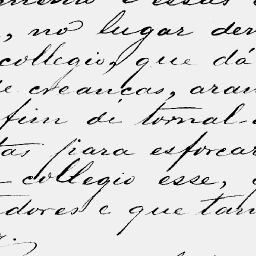 , no lugar den
collegio, que dá
e creancas, aran
fim di tornal-
tas para esforcar
collegio esse,
dores e que tam